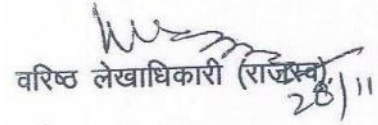 वरिष्ठ लेखाधिकारी (राजस्व)
28/11